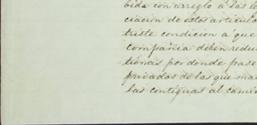 bida con arreglo á las l
ciacion de estos articul
triste condicion á que
compañia deben redu
tiendas por donde pase
privadas de las que ma
las contiguas al cami